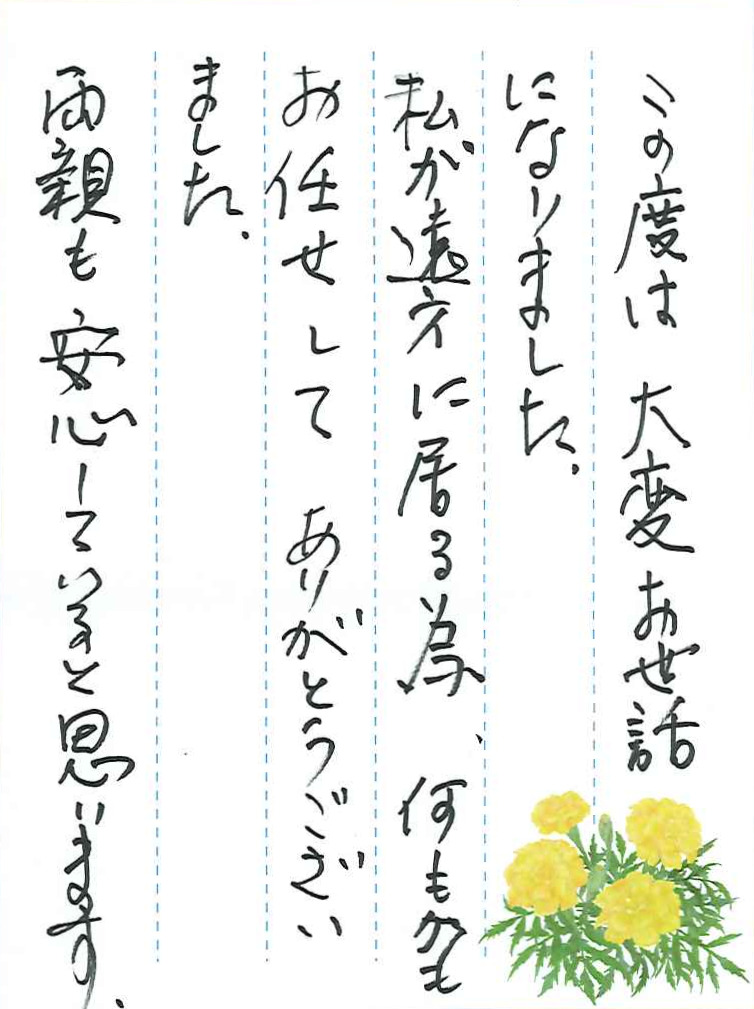 この度は 大変お世話
になりました。
私が遠方に居る為、何もかも
お任せして ありがとうござい
ました。
両親も 安心していると思います。